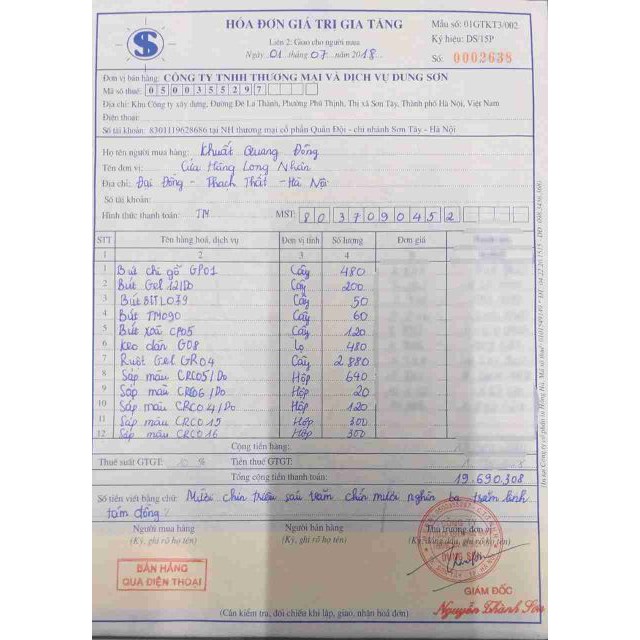 HÓA ĐƠN GIÁ TRỊ GIA TĂNG
Liên 2: Giao cho người mua
Ngày 01 tháng 07 năm 2018
Mẫu số: 01GTKT3/002
Ký hiệu: DS/15P
Số: 0002638
S
Đơn vị bán hàng: CÔNG TY TNHH THƯƠNG MẠI VÀ DỊCH VỤ DUNG SƠN
Mã số thuế: 0500355297
Địa chỉ: Khu Công ty xây dựng, Đường Đê La Thành, Phường Phú Thịnh, Thị xã Sơn Tây, Thành phố Hà Nội, Việt Nam
Điện thoại:
Số tài khoản: 8301119628686 tại NH thương mại cổ phần Quân Đội - chi nhánh Sơn Tây - Hà Nội
Họ tên người mua hàng: Khuất Quang Đồng
Tên đơn vị: Cửa Hàng Long Nhân
Địa chỉ: Đại Đồng - Thạch Thất - Hà Nội
Số tài khoản:
Hình thức thanh toán: TM MST: 8037090452
STT Tên hàng hoá, dịch vụ Đơn vị tính Số lượng Đơn giá
1 2 3 4
1 Bút chì gỗ GP01 Cây 480
2 Bút Gel 12/Do Cây 200
3 Bút BITL079 Cây 50
4 Bút TM090 Cây 60
5 Bút xoá CP05 Cây 120
6 Keo dán G08 Lọ 480
7 Ruột Gel GR04 Cây 2 880
8 Sáp màu CRC05/Do Hộp 640
9 Sáp màu CRC06/Do Hộp 20
10 Sáp màu CRC04/Do Hộp 120
11 Sáp màu CRC015 Hộp 300
12 Sáp màu CRC016 Hộp 300
Cộng tiền hàng:
Thuế suất GTGT: % Tiền thuế GTGT:
Tổng cộng tiền thanh toán: 19.690.308
Số tiền viết bằng chữ: Mười chín triệu sáu trăm chín mươi nghìn ba trăm linh
tám đồng
Người mua hàng Người bán hàng Thủ trưởng đơn vị
(Ký, ghi rõ họ tên) (Ký, ghi rõ họ tên) (Ký, đóng dấu, ghi rõ họ tên)
BÁN HÀNG
QUA ĐIỆN THOẠI
DUNG SƠN
GIÁM ĐỐC
Nguyễn Thành Sơn
(Cần kiểm tra, đối chiếu khi lập, giao, nhận hoá đơn)